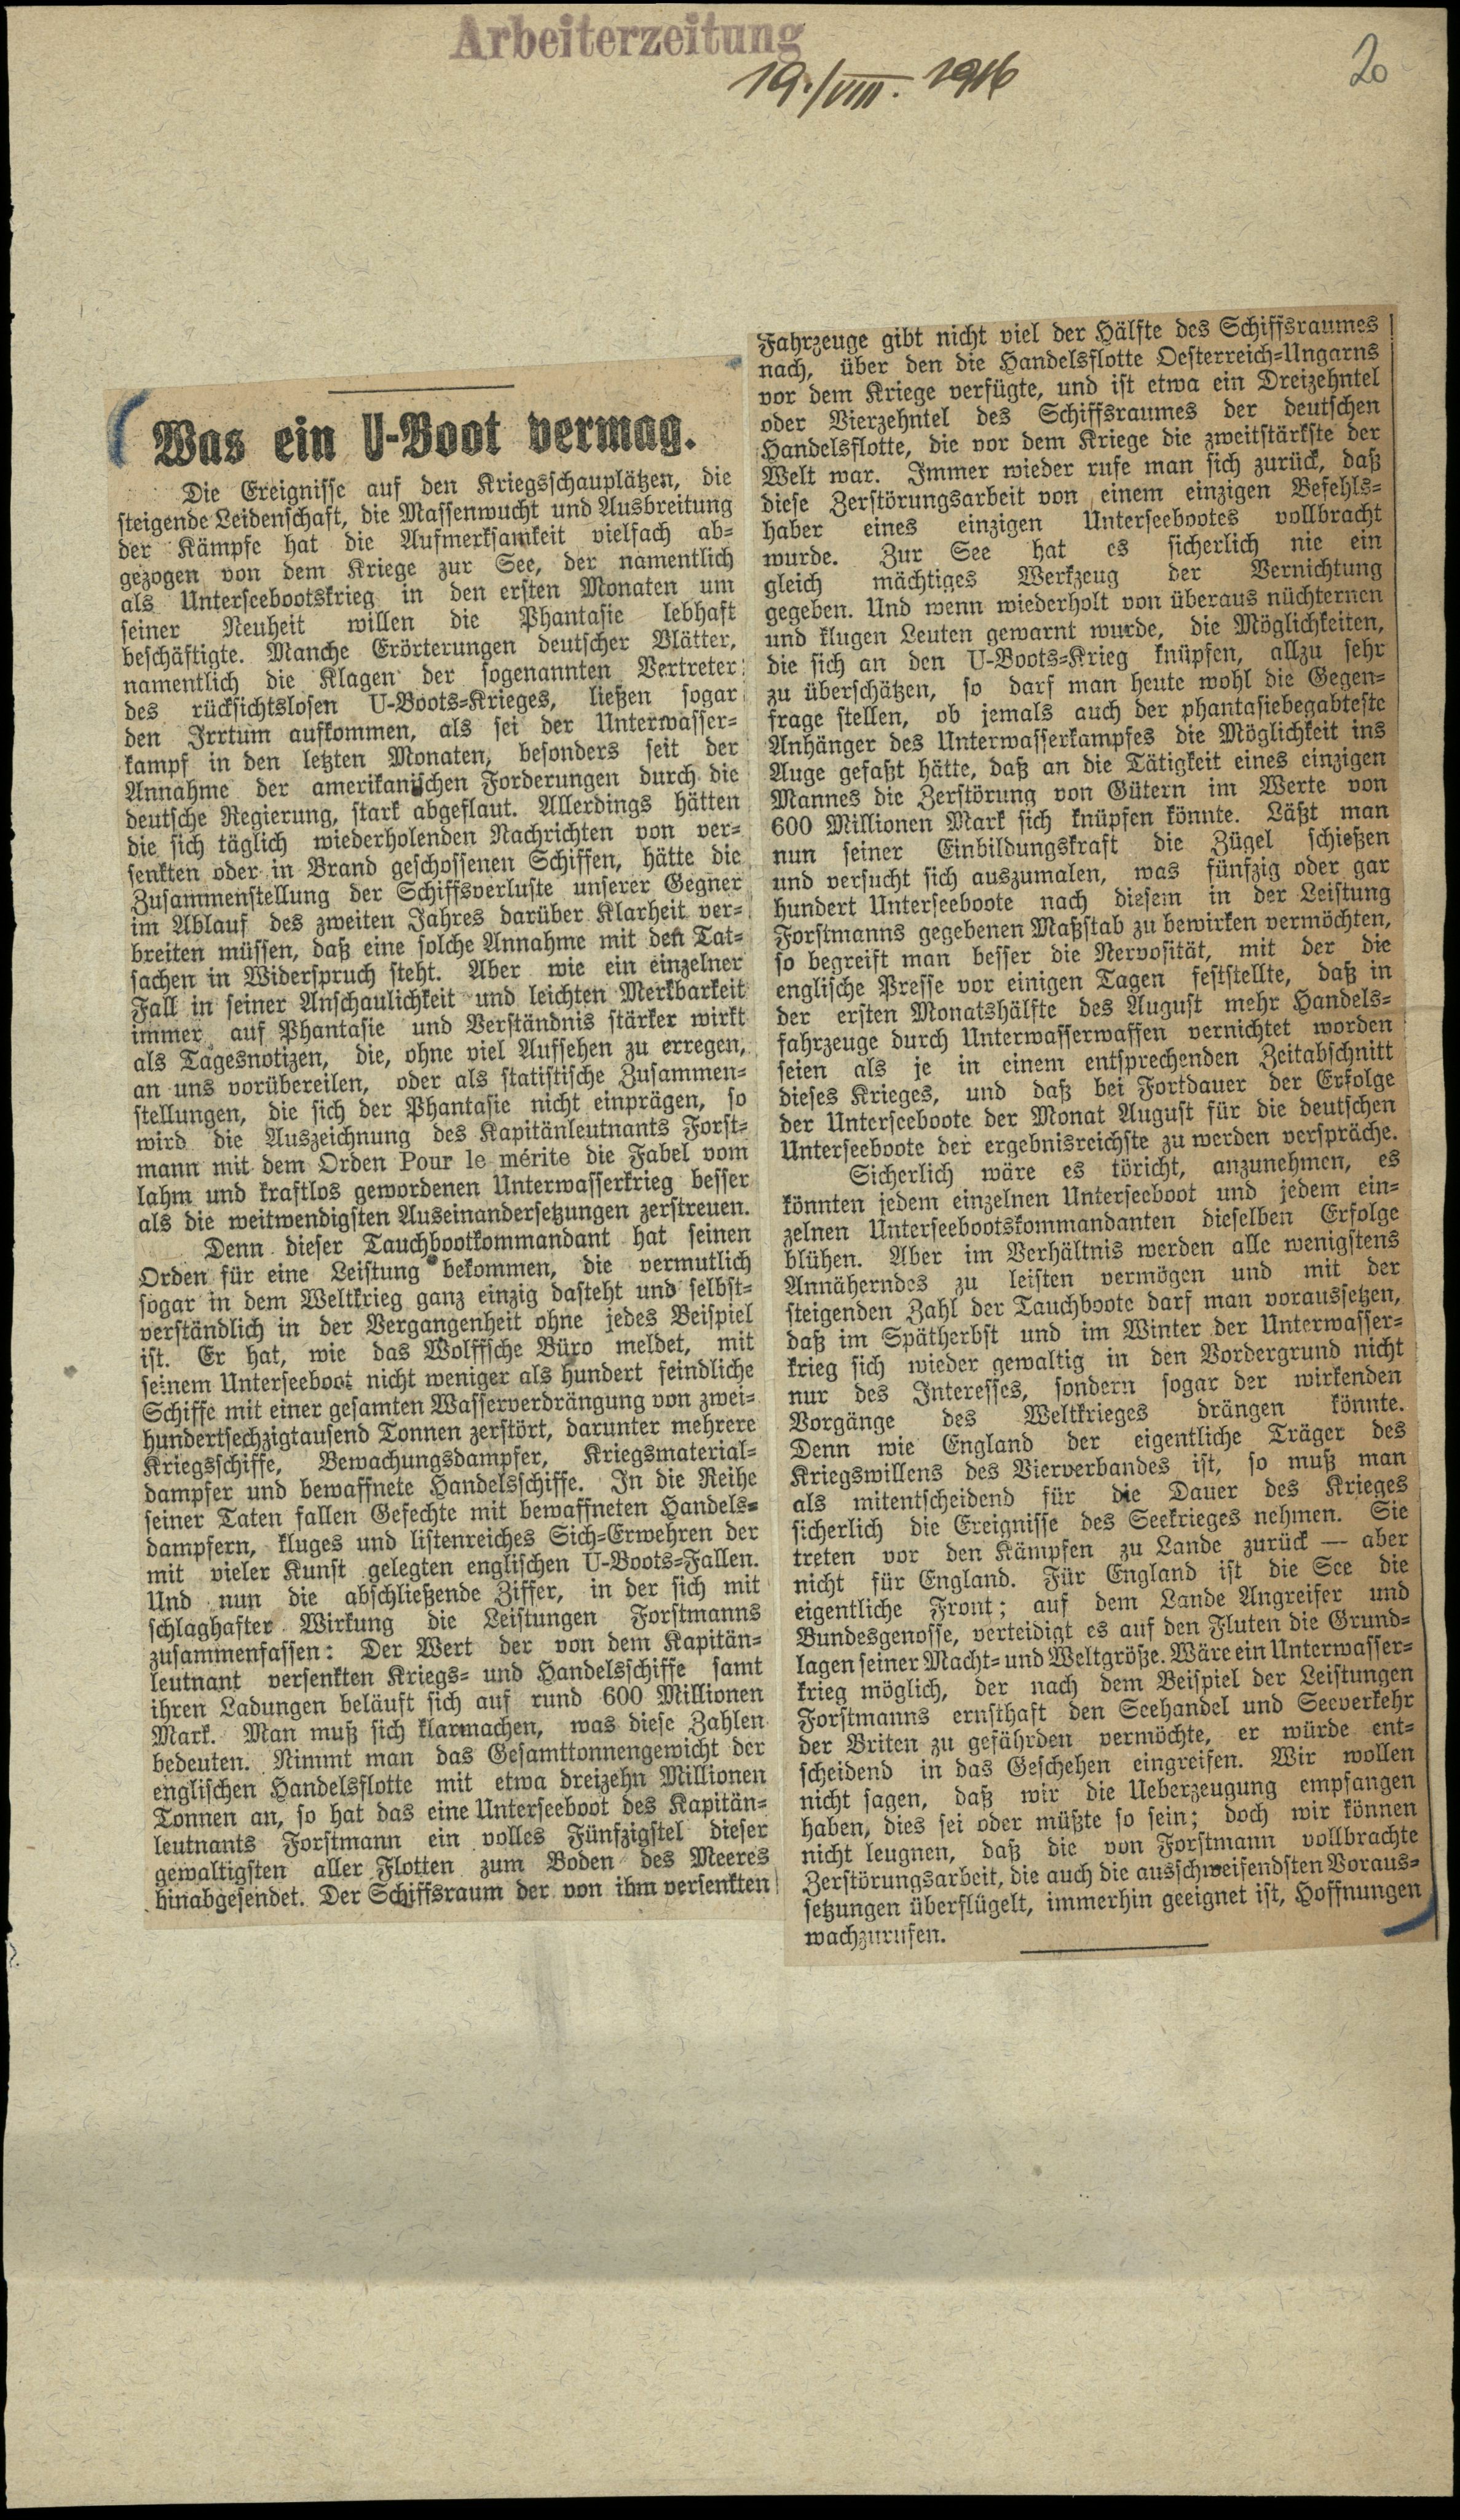 Arbeiterzeitung
19./VIII. 1916
20
Was ein U-Boot vermag.
Die Ereignisse auf den Kriegsschauplätzen, die
steigende Leidenschaft, die Massenwucht und Ausbreitung
der Kämpfe hat die Aufmerksamkeit vielfach ab-
gezogen von dem Kriege zur See, der namentlich
als Unterseebootskrieg in den ersten Monaten um
seiner Neuheit willen die Phantasie lebhaft
beschäftigte. Manche Erörterungen deutscher Blätter,
namentlich die Klagen der sogenannten Vertreter
des rücksichtslosen U-Boots-Krieges, ließen sogar
den Irrtum aufkommen, als sei der Unterwasser-
kampf in den letzten Monaten, besonders seit der
Annahme der amerikanischen Forderungen durch die
deutsche Regierung, stark abgeflaut. Allerdings hätten
die sich täglich wiederholenden Nachrichten von ver-
senkten oder in Brand geschossenen Schiffen, hätte die
Zusammenstellung der Schiffsverluste unserer Gegner
im Ablauf des zweiten Jahres darüber Klarheit ver-
breiten müssen, daß eine solche Annahme mit den Tat-
sachen in Widerspruch steht. Aber wie ein einzelner
Fall in seiner Anschaulichkeit und leichten Merkbarkeit
immer auf Phantasie und Verständnis stärker wirkt
als Tagesnotizen, die, ohne viel Aufsehen zu erregen,
an uns vorübereilen, oder als statistische Zusammen-
stellungen, die sich der Phantasie nicht einprägen, so
wird die Auszeichnung des Kapitänleutnants Forst-
mann mit dem Orden Pour le mérite die Fabel vom
lahm und kraftlos gewordenen Unterwasserkrieg besser
als die weitwendigsten Auseinandersetzungen zerstreuen.
Denn dieser Tauchbootkommandant hat seinen
Orden für eine Leistung bekommen, die vermutlich
sogar in dem Weltkrieg ganz einzig dasteht und selbst-
verständlich in der Vergangenheit ohne jedes Beispiel
ist. Er hat, wie das Wolffsche Büro meldet, mit
seinem Unterseeboot nicht weniger als hundert feindliche
Schiffe mit einer gesamten Wasserverdrängung von zwei-
hundertsechzigtausend Tonnen zerstört, darunter mehrere
Kriegsschiffe, Bewachungsdampfer, Kriegsmaterial-
dampfer und bewaffnete Handelsschiffe. In die Reihe
seiner Taten fallen Gefechte mit bewaffneten Handels-
dampfern, kluges und listenreiches Sich-Erwehren der
mit vieler Kunst gelegten englischen U-Boots-Fallen.
Und nun die abschließende Ziffer, in der sich mit
schlaghafter Wirkung die Leistungen Forstmanns
zusammenfassen: Der Wert der von dem Kapitän-
leutnant versenkten Kriegs- und Handelsschiffe samt
ihren Ladungen beläuft sich auf rund 600 Millionen
Mark. Man muß sich klarmachen, was diese Zahlen
bedeuten. Nimmt man das Gesamttonnengewicht der
englischen Handelsflotte mit etwa dreizehn Millionen
Tonnen an, so hat das eine Unterseeboot des Kapitän-
leutnants Forstmann ein volles Fünfzigstel dieser
gewaltigsten aller Flotten zum Boden des Meeres
hinabgesendet. Der Schiffsraum der von ihm versenkten
Fahrzeuge gibt nicht viel der Hälfte des Schiffsraumes
nach, über den die Handelsflotte Oesterreich-Ungarns
vor dem Kriege verfügte, und ist etwa ein Dreizehntel
oder Vierzehntel des Schiffsraumes der deutschen
Handelsflotte, die vor dem Kriege die zweitstärkste der
Welt war. Immer wieder rufe man sich zurück, daß
diese Zerstörungsarbeit von einem einzigen Befehls-
haber eines einzigen Unterseebootes vollbracht
wurde. Zur See hat es sicherlich nie ein
gleich mächtiges Werkzeug der Vernichtung
gegeben. Und wenn wiederholt von überaus nüchternen
und klugen Leuten gewarnt wurde, die Möglichkeiten,
die sich an den U-Boots-Krieg knüpfen, allzu sehr
zu überschätzen, so darf man heute wohl die Gegen-
frage stellen, ob jemals auch der phantasiebegabteste
Anhänger des Unterwasserkampfes die Möglichkeit ins
Auge gefaßt hätte, daß an die Tätigkeit eines einzigen
Mannes die Zerstörung von Gütern im Werte von
600 Millionen Mark sich knüpfen könnte. Läßt man
nun seiner Einbildungskraft die Zügel schießen
und versucht sich auszumalen, was fünfzig oder gar
hundert Unterseeboote nach diesem in der Leistung
Forstmanns gegebenen Maßstab zu bewirken vermöchten,
so begreift man besser die Nervosität, mit der die
englische Presse vor einigen Tagen feststellte, daß in
der ersten Monatshälfte des August mehr Handels-
fahrzeuge durch Unterwasserwaffen vernichtet worden
seien als je in einem entsprechenden Zeitabschnitt
dieses Krieges, und daß bei Fortdauer der Erfolge
der Unterseeboote der Monat August für die deutschen
Unterseeboote der ergebnisreichste zu werden verspräche.
Sicherlich wäre es töricht, anzunehmen, es
könnten jedem einzelnen Unterseeboot und jedem ein-
zelnen Unterseebootskommandanten dieselben Erfolge
blühen. Aber im Verhältnis werden alle wenigstens
Annäherndes zu leisten vermögen und mit der
steigenden Zahl der Tauchboote darf man voraussetzen,
daß im Spätherbst und im Winter der Unterwasser-
krieg sich wieder gewaltig in den Vordergrund nicht
nur des Interesses, sondern sogar der wirkenden
Vorgänge des Weltkrieges drängen könnte.
Denn wie England der eigentliche Träger des
Kriegswillens des Vierverbandes ist, so muß man
als mitentscheidend für die Dauer des Krieges
sicherlich die Ereignisse des Seekrieges nehmen. Sie
treten vor den Kämpfen zu Lande zurück — aber
nicht für England. Für England ist die See die
eigentliche Front; auf dem Lande Angreifer und
Bundesgenosse, verteidigt es auf den Fluten die Grund-
lagen seiner Macht- und Weltgröße. Wäre ein Unterwasser-
krieg möglich, der nach dem Beispiel der Leistungen
Forstmanns ernsthaft den Seehandel und Seeverkehr
der Briten zu gefährden vermöchte, er würde ent-
scheidend in das Geschehen eingreifen. Wir wollen
nicht sagen, daß wir die Ueberzeugung empfangen
haben, dies sei oder müßte so sein; doch wir können
nicht leugnen, daß die von Forstmann vollbrachte
Zerstörungsarbeit, die auch die ausschweifendsten Voraus-
setzungen überflügelt, immerhin geeignet ist, Hoffnungen
wachzurufen.